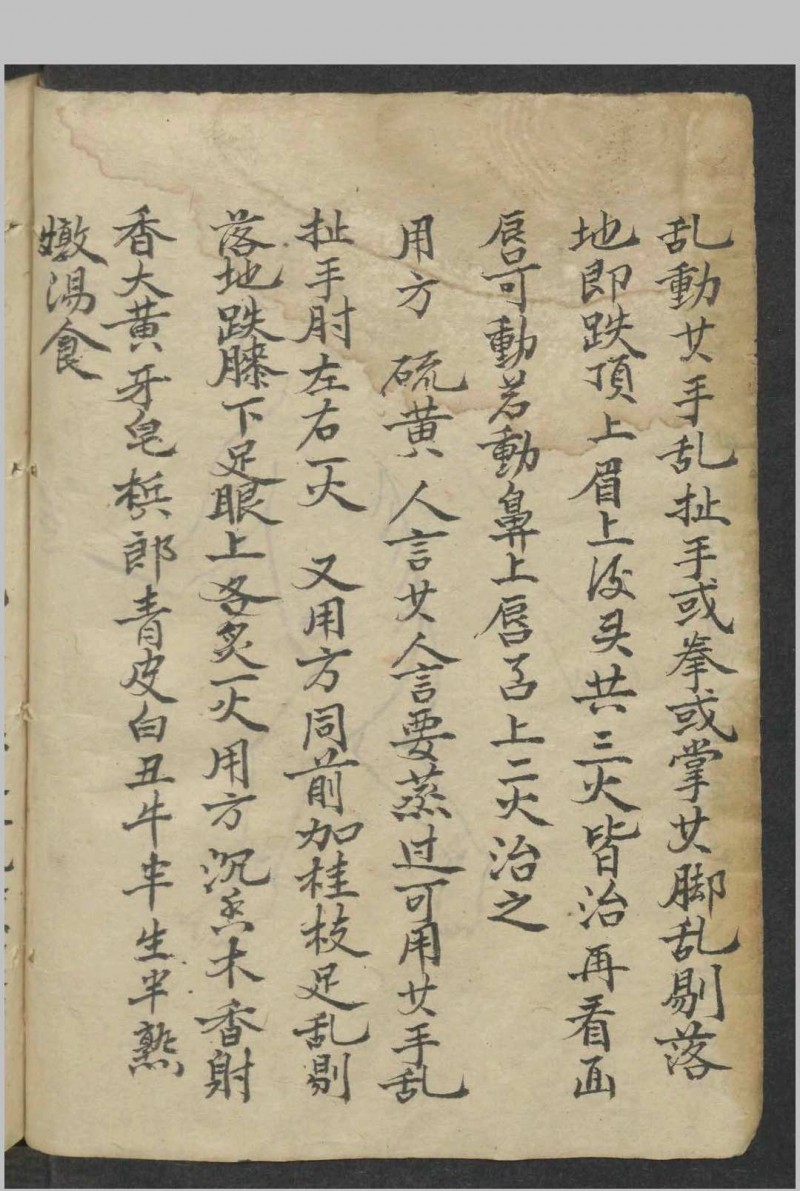 乱動廿手乱扯手或拳或掌廿脚乱剔落
地即跌頂上眉上後头共三火皆治再看面
唇可動若動鼻上唇舌上二火治之
用方 硫黄人言廿人言要蒸过可用廿手乱
扯手肘左右一火 又用方同前加桂枝足乱剔
落地跌膝下足眼上各炙一火用方沉香木香射
香大黄牙皂梹郎青皮白丑牛半生半熟
燉湯食